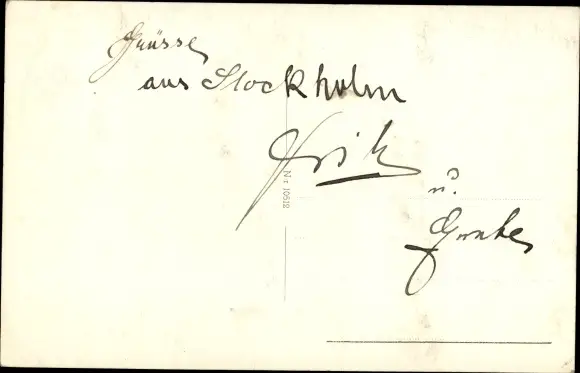 Grüsse
aus Stockholm
Fritz
u.
Nr 10612